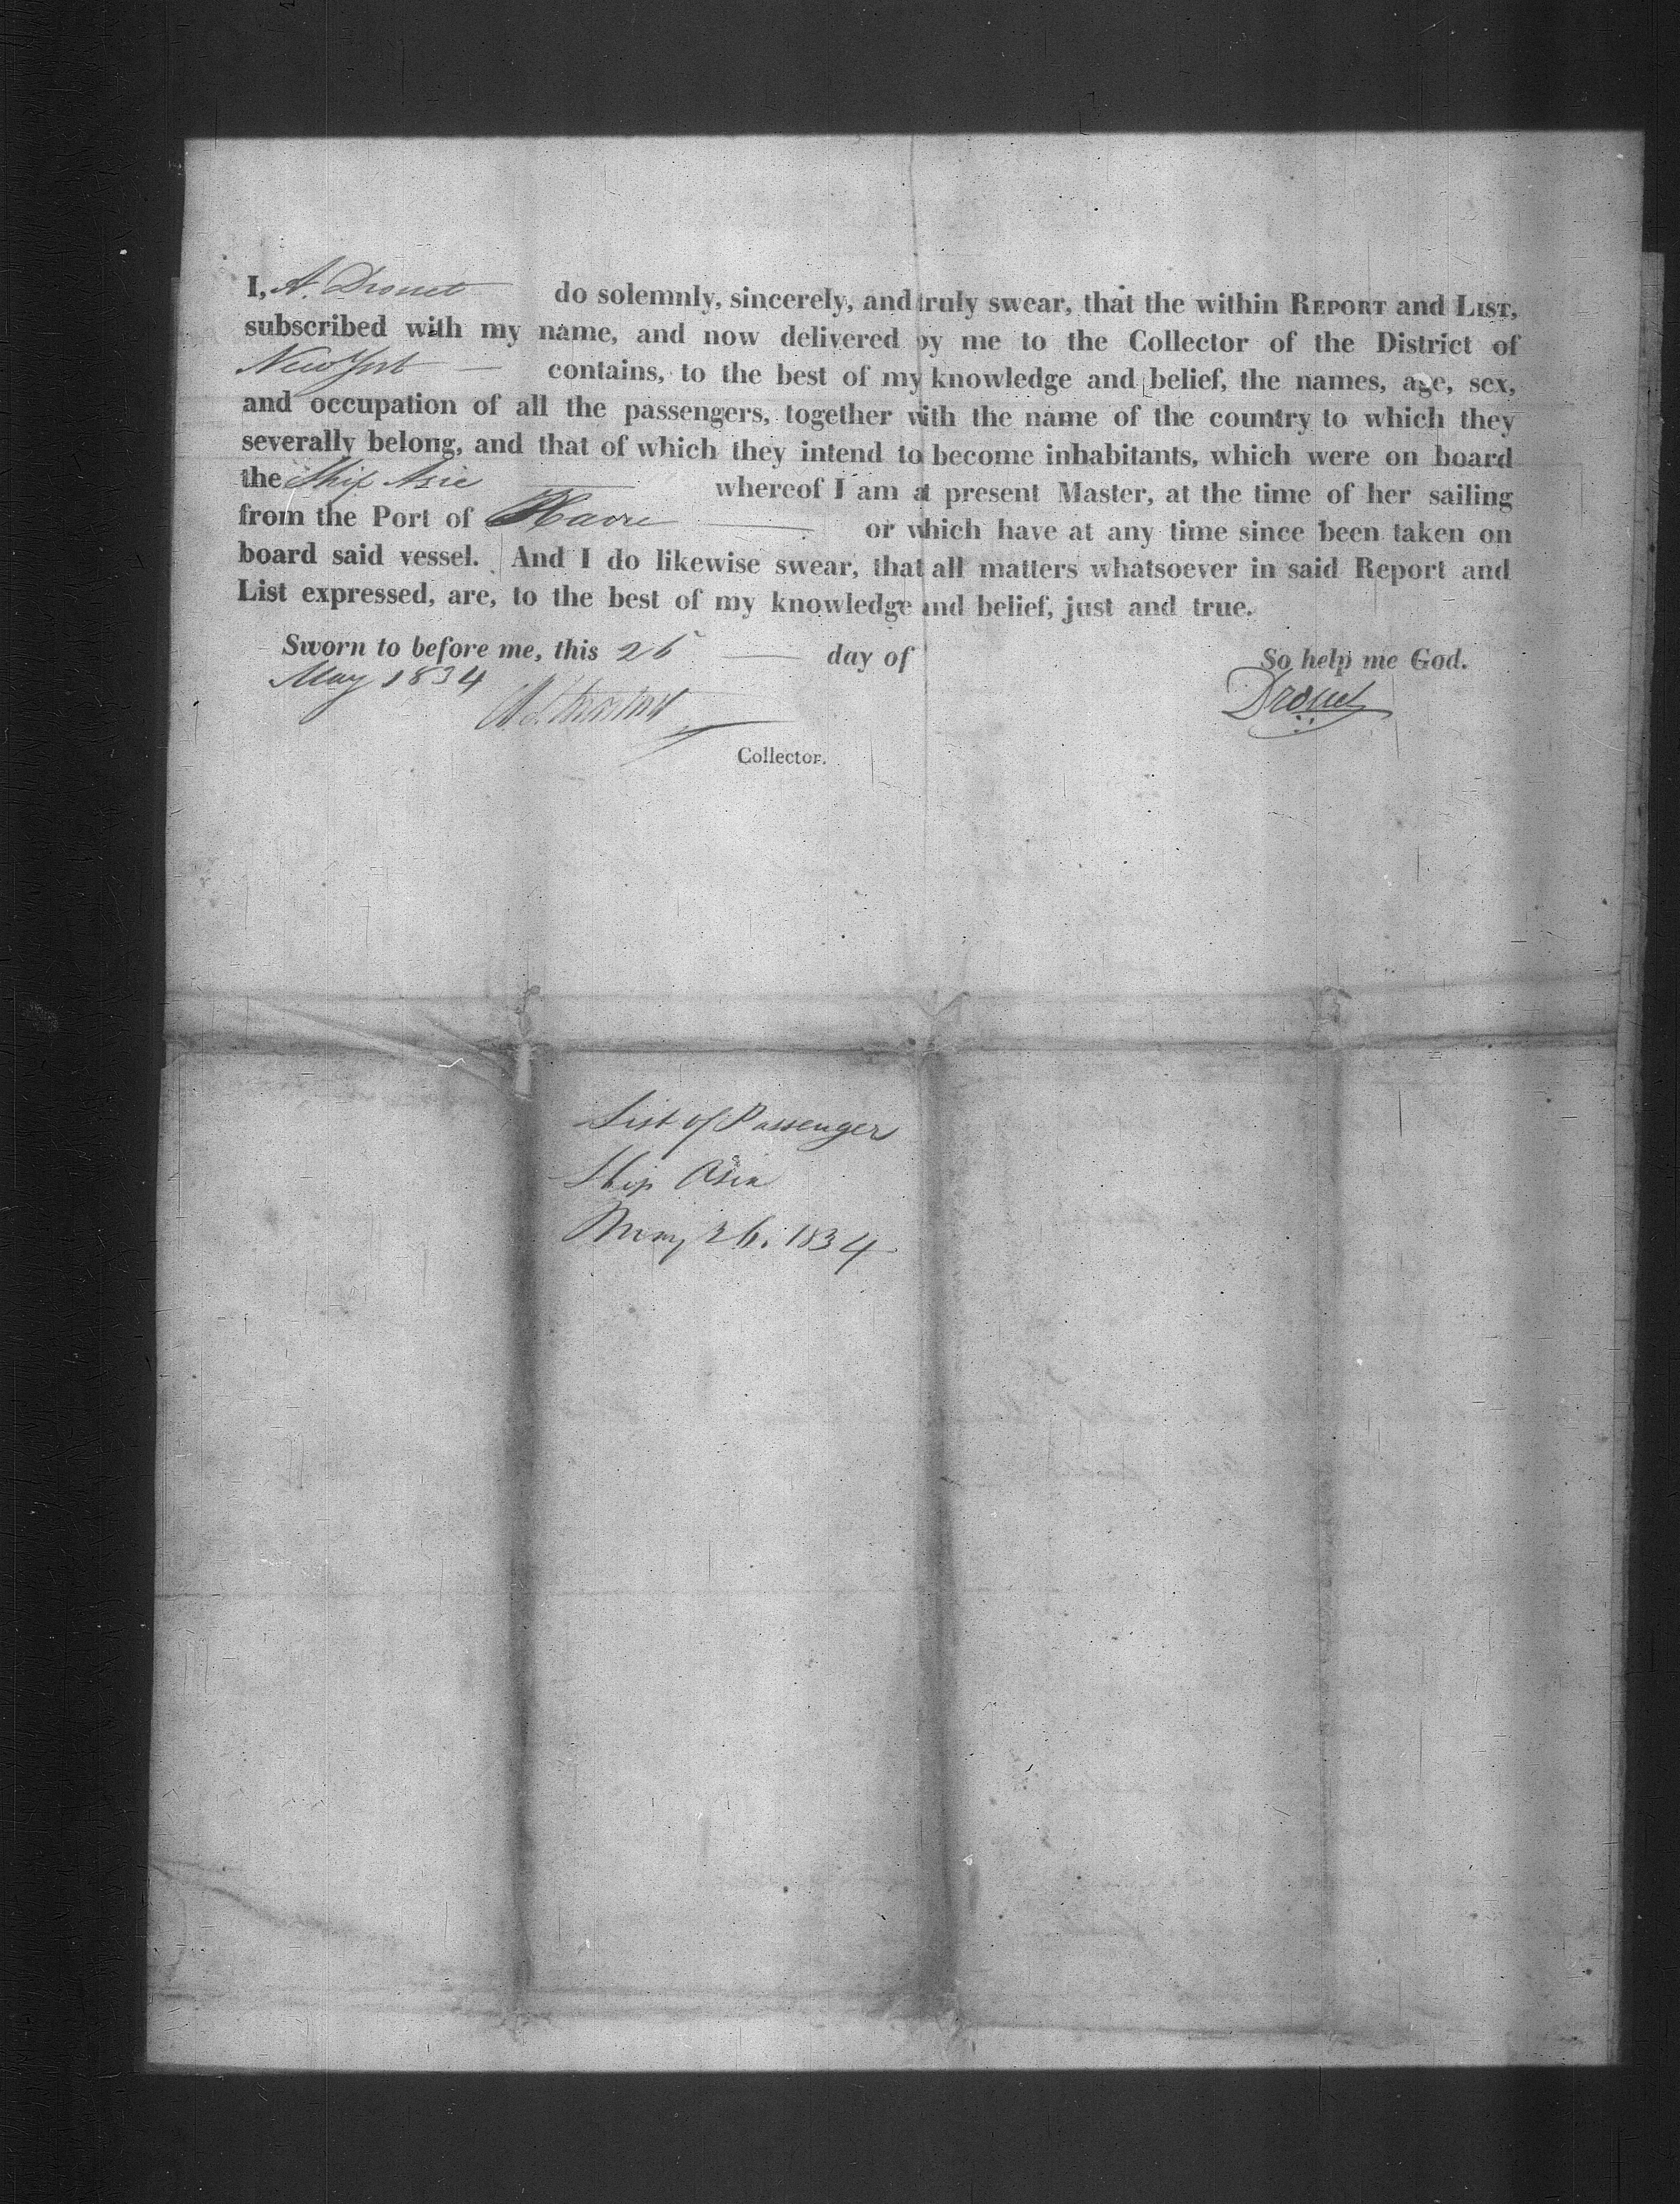 I, A. Drouet do solemnly, sincerely, and truly swear, that the within REPORT and LIST,
subscribed with my name, and now delivered by me to the Collector of the District of
New York contains, to the best of my knowledge and belief, the names, age, sex,
and occupation of all the passengers, together with the name of the country to which they
severally belong, and that of which they intend to become inhabitants, which were on board
the Ship Asie whereof I am at present Master, at the time of her sailing
from the Port of Havre or which have at any time since been taken on
board said vessel. And I do likewise swear, that all matters whatsoever in said Report and
List expressed, are, to the best of my knowledge and belief, just and true.
Sworn to before me, this 26 day of So help me God.
May 1834
Drouet
Collector.
List of Passenger
Ship Asia
May 26. 1834